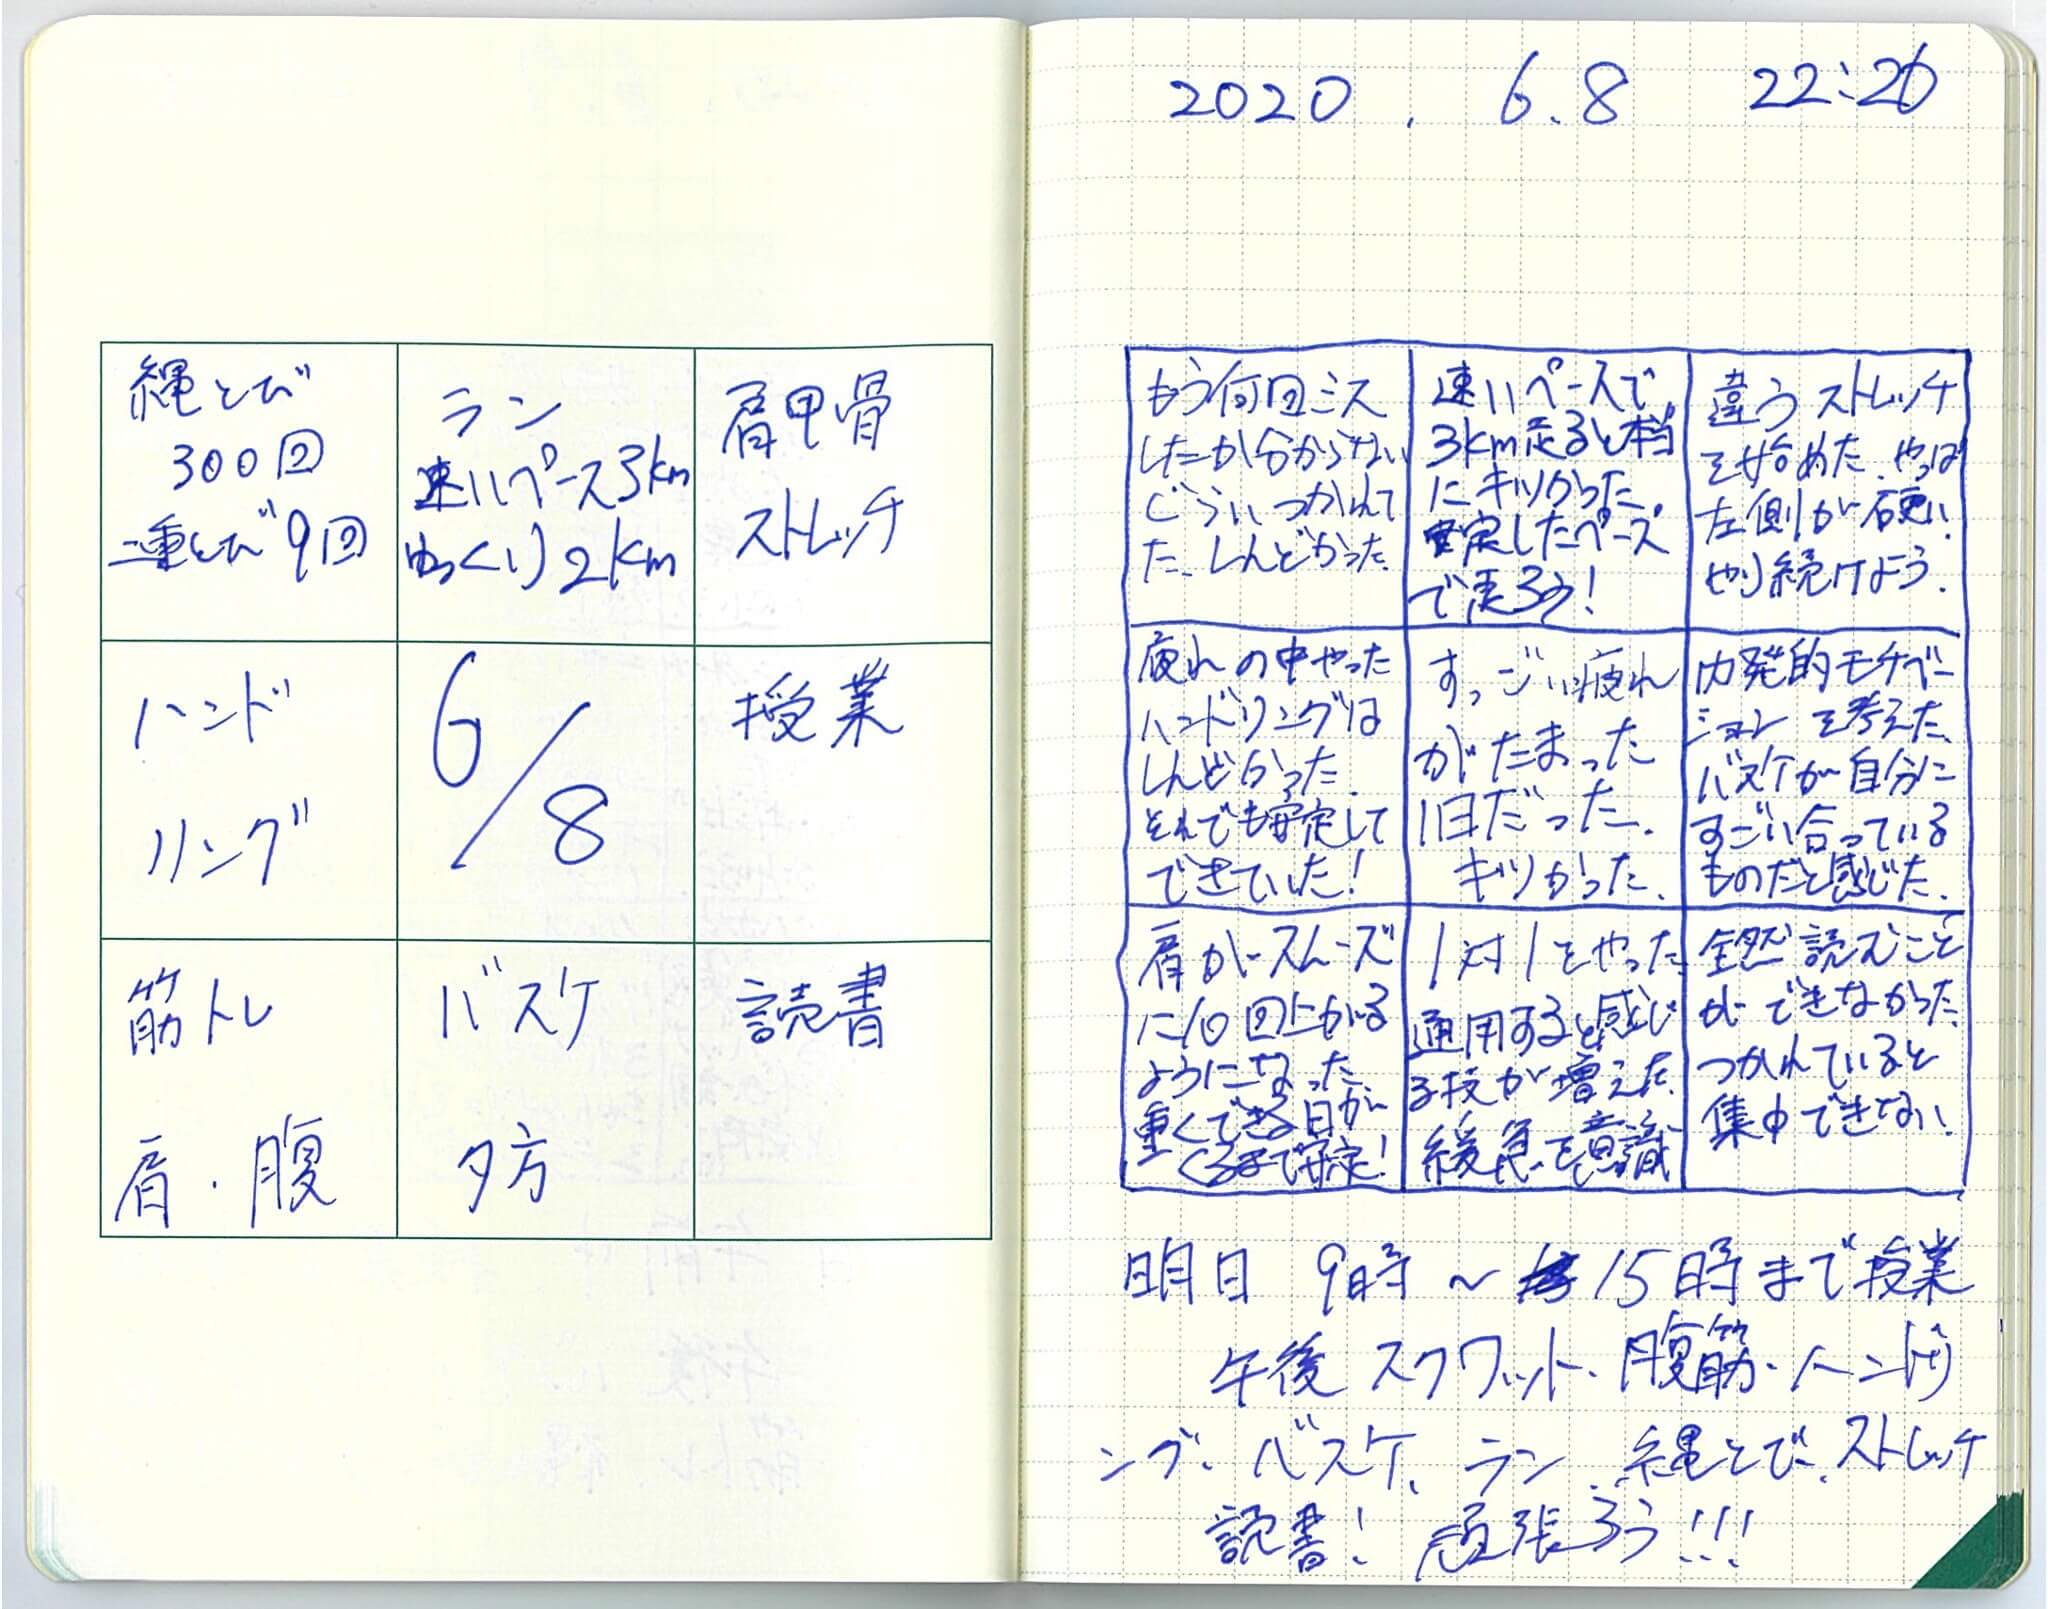 縄とび
300回
二重とび9回
ラン
速いペース3km
ゆっくり2km
肩甲骨
ストレッチ
ハンド
リング
6/8
授業
筋トレ
肩・腹
バスケ
夕方
読書
2020.6.8 22:26
もう何回ミス
したか分からない
ぐらいつかれて
た、しんどかった
速いペースで
3km走ると本当
にキツかった。
安定したペース
で走ろう!
違うストレッチ
を始めた、やっぱ
左側が硬い、
やり続けよう.
疲れの中やった
ハンドリングは
しんどかった.
それでも安定して
できていた!
すっごい疲れ
がたまった
1日だった.
キツかった.
内発的モチベー
ションを考えた、
バスケが自分に
すごい合っている
ものだと感じた.
肩がスムーズ
に10回上がる
ようになった、
重くできる日が
くるまで安定!
1対1をやった
通用すると感じ
る技が増えた、
緩急を意識
全然読むこと
ができなかった、
つかれていると
集中できない.
明日 9時~15時まで授業
午後 スクワット、腹筋・ハンドリ
ング、バスケ、ラン、縄とび、ストレッチ
読書! 頑張ろう!!!